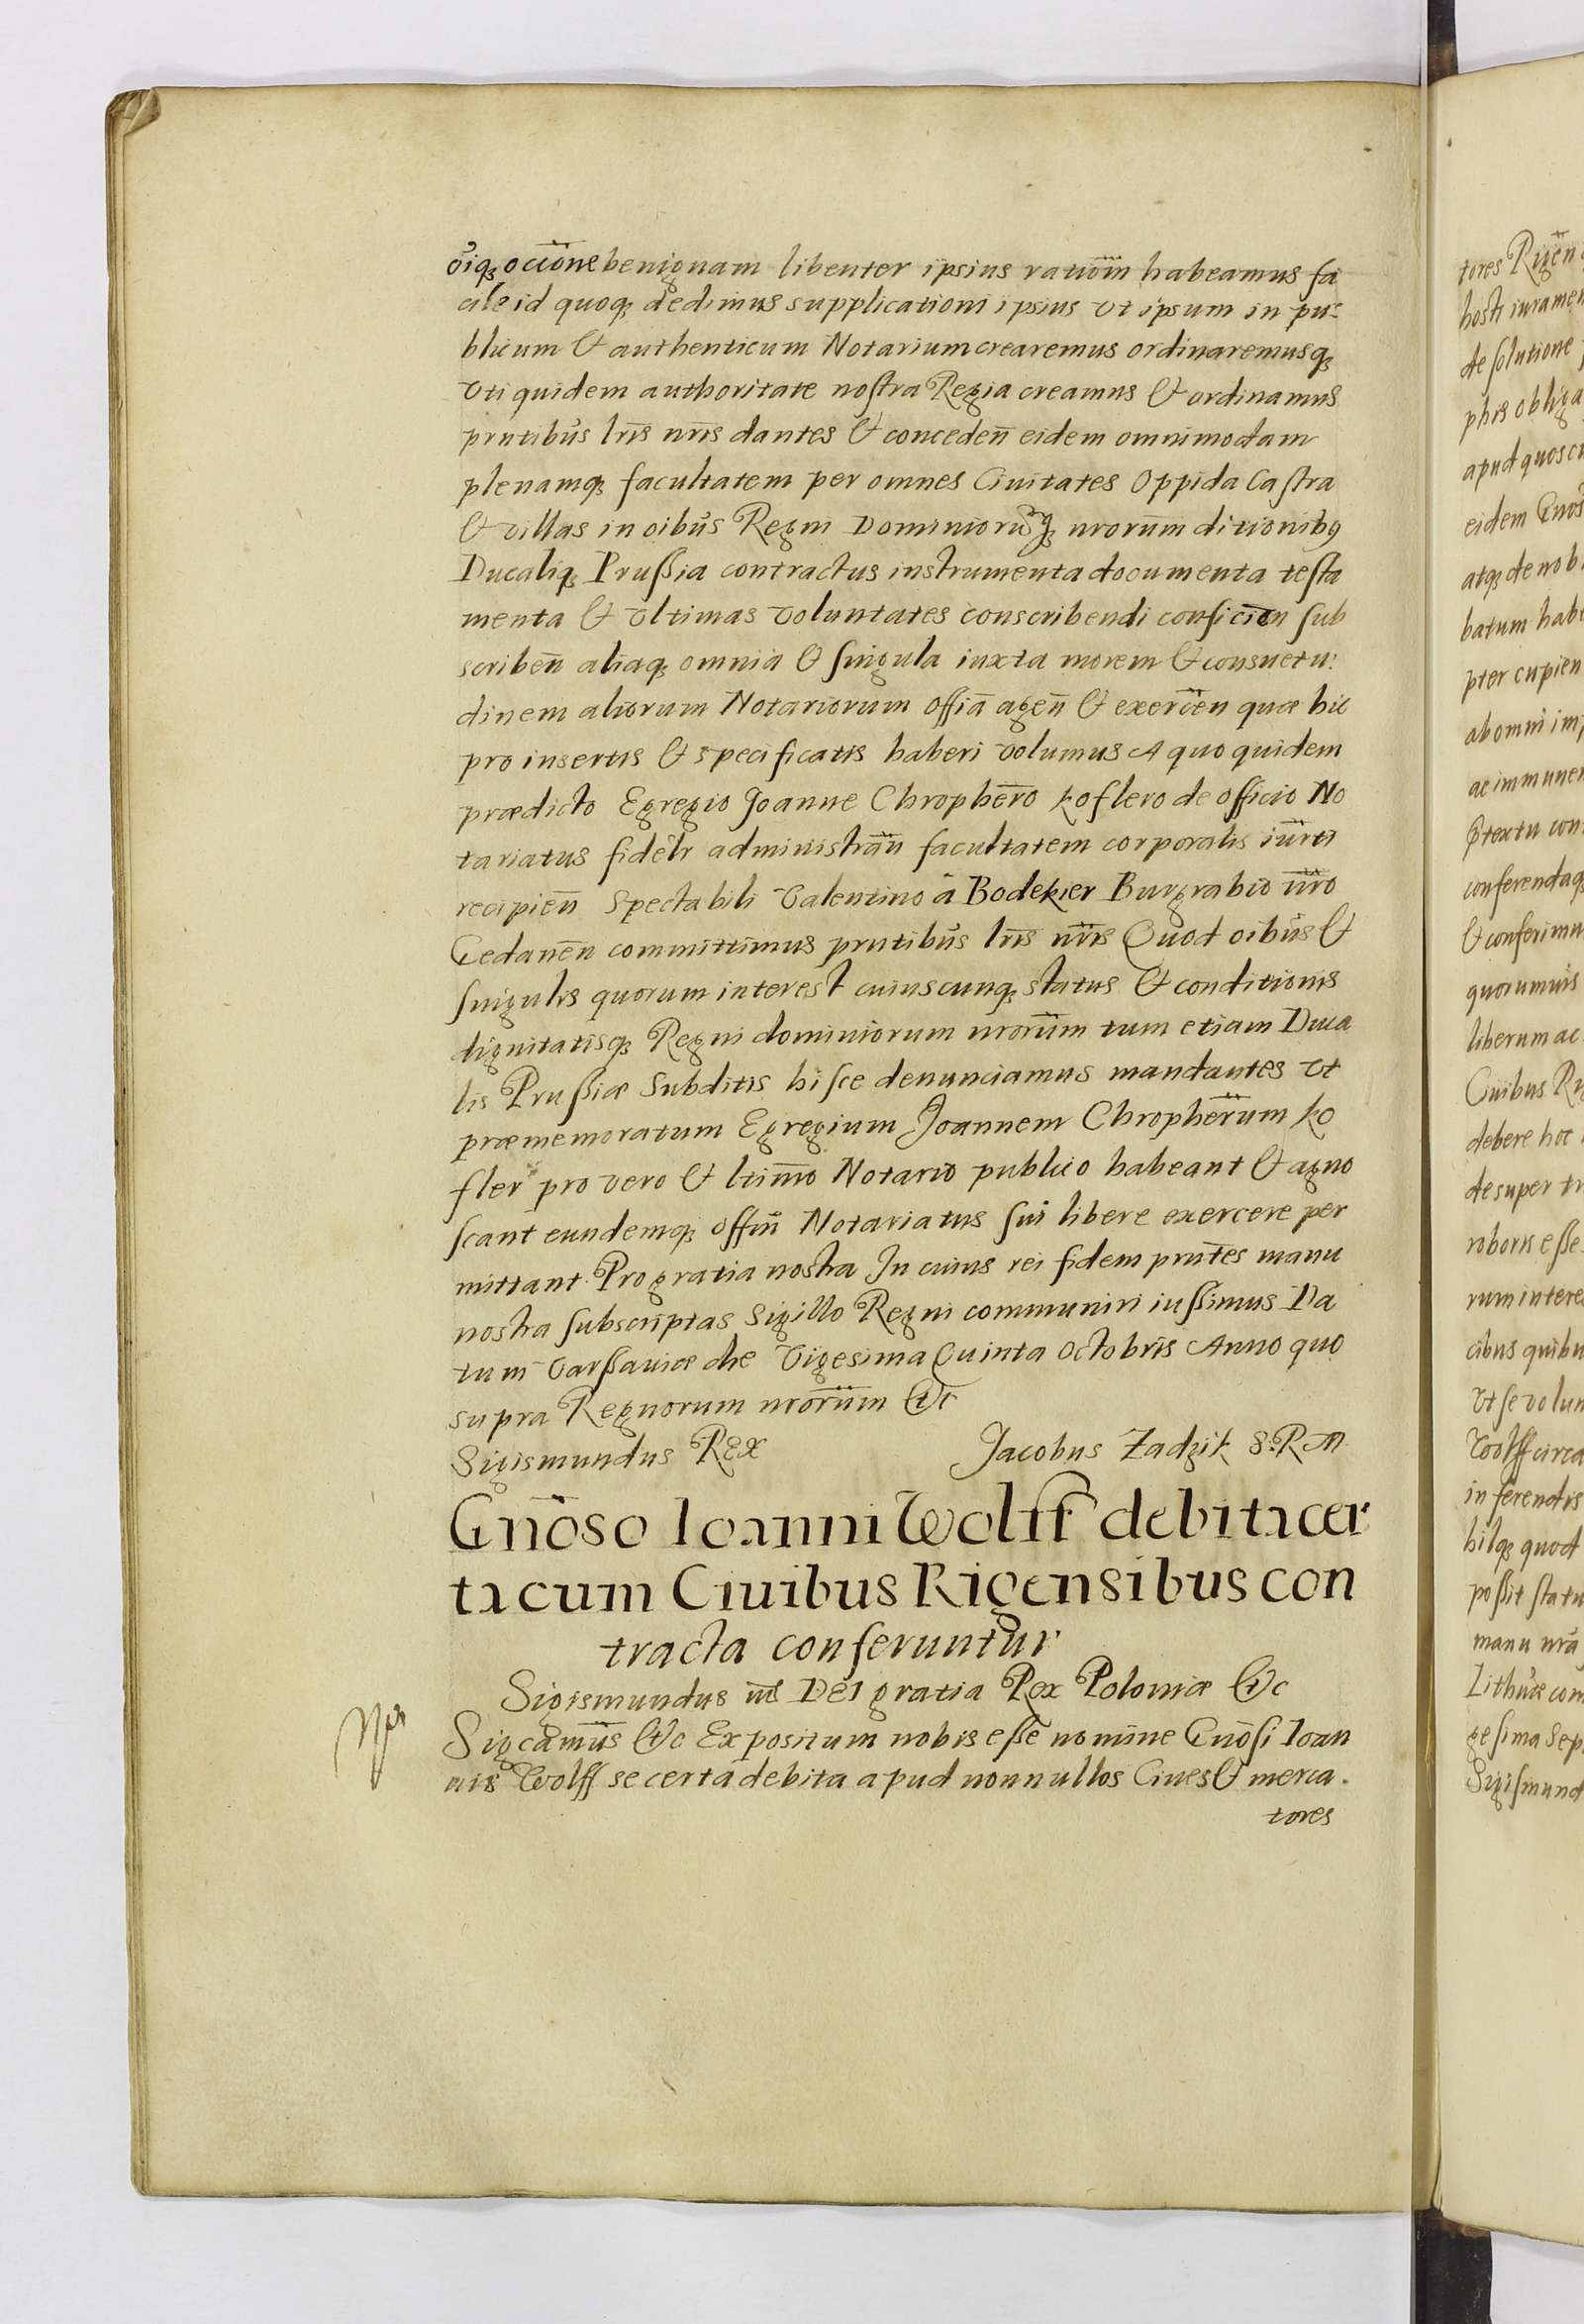 oiq₃ occione benignam libenter ipsius rationem habeamus fa
cile id quoq₃ dedimus supplicationi ipsius vt ipsum in pu-
blicum & authenticum Notarium crearemus ordinaremusq₃
vti quidem authoritate nostra Regia creamus & ordinamus
pntibus lris nris dantes & conceden̄ eidem omnimodam
plenamq₃ facultatem per omnes Ciuitates Oppida Castra
& villas in oibus Regni Dominiorumq₃ nrorum ditionibꝰ
Ducaliq₃ Prussia contractus instrumenta documenta testa
menta & vltimas voluntates conscribendi conficien̄ sub
scriben̄ aliaq₃ omnia & singula iuxta morem & consuetu:
dinem aliorum Notariorum offia agen̄ & exercen̄ quæ hic
pro insertis & specificatis haberi volumus A quo quidem
prædicto Egregio Joanne Chrophero Koflero de officio No
tariatus fidelr administran̄ facultatem corporalis iurti
recipien̄ Spectabili Valentino à Bodekier Burgrabio nro
Gedanen̄ committimus pntibus lris nris Quod oibus &
singulis quorum interest cuiuscunq₃ status & conditionis
dignitatisq₃ Regni dominiorum nrorum tum etiam Duca
lis Prussiæ Subditis hisce denunciamus mandantes vt
præmemoratum Egregium Joannem Chropherum Ko
fler pro vero & ltimo Notario publico habeant & agno
scant eundemq₃ offm Notariatus sui libere exercere per
mittant Pro gratia nostra In cuius rei fidem pntes manu
nostra subscriptas Sigillo Regni communiri iussimus Da
tum Varssauiæ die Vigesima Quinta Octobris Anno quo
supra Regnorum nrorum &c
Sigismundus Rex Jacobus Zadzik S. R. M
Gnoso Ioanni Wolff debita cer
ta cum Ciuibus Rigensibus con
tracta conferuntur
Sigismundus iiis Dei gratia Rex Poloniæ &c
Sigcamus &c Expositum nobis esse nomine Gnosi Ioan
nis Wolff se certa debita apud nonnullos Ciues & merca.
tores
tores Rigen
hosti iuramen
de solutione
phis obliga
apud quoscu
eidem Gnos
atq₃ de nob
batum habe
pter cupien
ab omni im
ac immunen
ptextu con
conferendaq₃
& conferimu
quorumuis
liberum ac
Ciuibus Ri
debere hoc
desuper
roboris esse
rum intere
cibus quibu
Vt se volun
Wolff circa
in ferendis
hilq₃ quod
possit statu
manu nra
Lithuæ com
gesima Sep
Sigismund